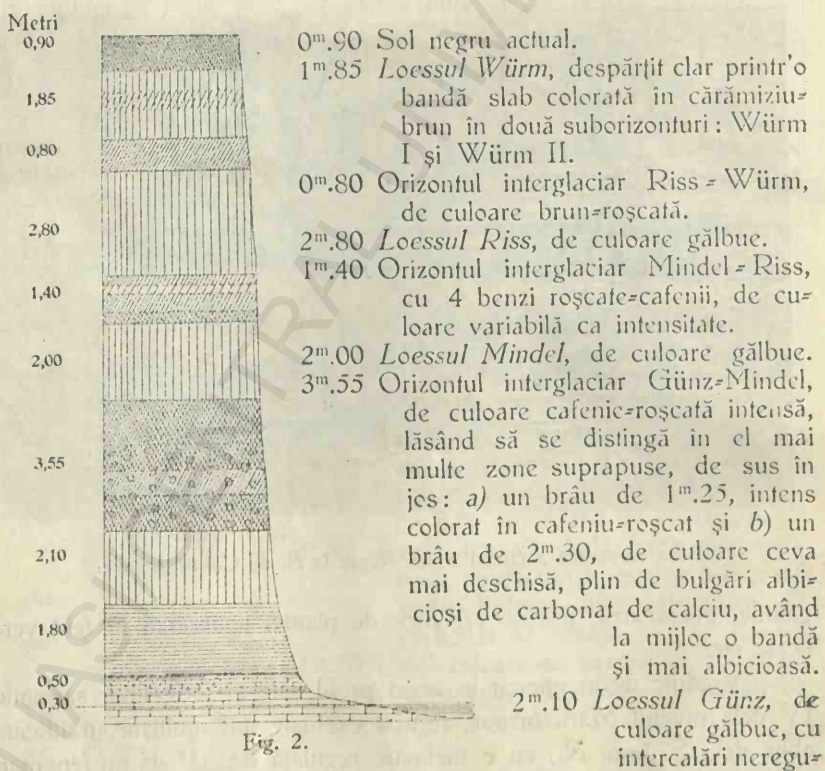 Metri
0,90
1,85
0,80
2,80
1,40
2,00
3,55
2,10
1,80
0,50
0,30
Fig. 2.
0ᵐ.90 Sol negru actual.
1ᵐ.85 Loessul Würm, despărțit clar printr'o
bandă slab colorată în cărămiziu=
brun în două suborizonturi: Würm
I și Würm II.
0ᵐ.80 Orizontul interglaciar Riss = Würm,
de culoare brun=roșcată.
2ᵐ.80 Loessul Riss, de culoare gălbue.
1ᵐ.40 Orizontul interglaciar Mindel = Riss,
cu 4 benzi roșcate=cafenii, de cu=
loare variabilă ca intensitate.
2ᵐ.00 Loessul Mindel, de culoare gălbue.
3ᵐ.55 Orizontul interglaciar Günz=Mindel,
de culoare cafenie=roșcată intensă,
lăsând să se distingă în el mai
multe zone suprapuse, de sus în
jos: a) un brâu de 1ᵐ.25, intens
colorat în cafeniu=roșcat și b) un
brâu de 2ᵐ.30, de culoare ceva
mai deschisă, plin de bulgări albi=
cioși de carbonat de calciu, având
la mijloc o bandă
și mai albicioasă.
2ᵐ.10 Loessul Günz, de
culoare gălbue, cu
intercalări neregu=